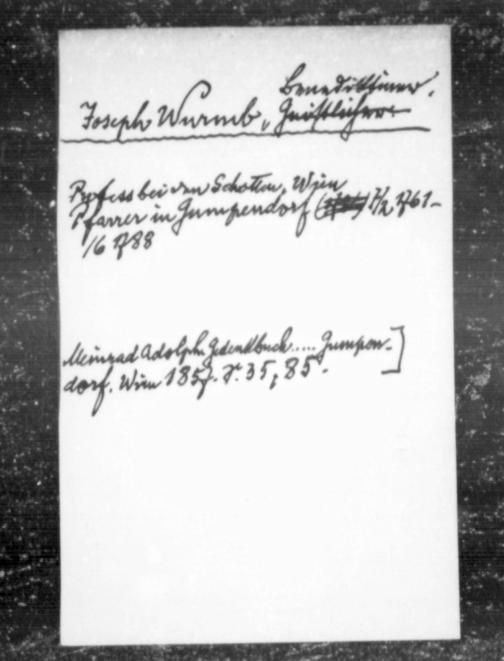 Benediktiner,
Joseph Wurmb, Geistlicher
Profess bei den Schotten, Wien
Pfarrer in Gumpendorf 7/2 1761-
1/6 1788
Meinrad Adolph. Gedenkbuch ..... Gumpen-]
dorf. Wien 1857. S. 35, 85.